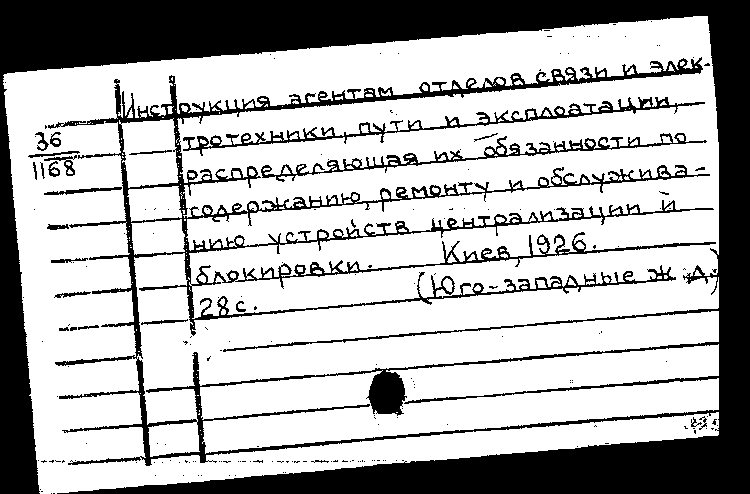 Инструкция агентам отделов связи и элек-
36
1168
тротехники, пути и эксплоатации,
распределяющая их обязанности по
содержанию, ремонту и обслужива=
нию устройств централизации и
блокировки. Киев, 1926.
28 с. (Юго-западные ж.д.)